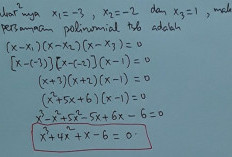 akar²nya x₁=-3, x₂=-2 dan x₃=1, maka
persamaan polinomial tsb adalah
(x-x₁)(x-x₂)(x-x₃)=0
[x-(-3)][x-(-2)](x-1)=0
(x+3)(x+2)(x-1)=0
(x²+5x+6)(x-1)=0
x³-x²+5x²-5x+6x-6=0
x³+4x²+x-6=0.